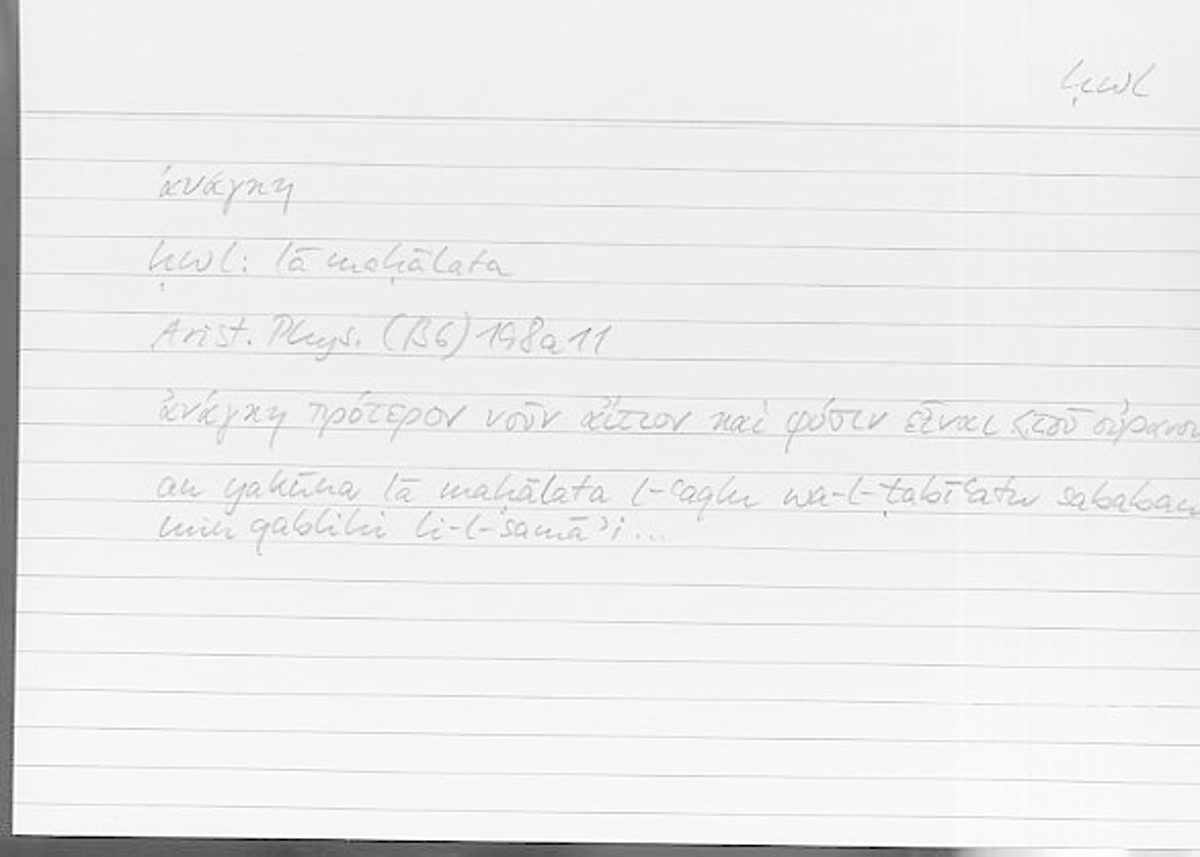 ḥwl
ἀνάγκη
ḥwl: lā maḥālata
Arist. Phys. (B6) 198a11
ἀνάγκη πρότερον νοῦν αἴτιον καὶ φύσιν εἶναι <τοῦ οὐρανοῦ
an yakūna lā maḥālata l-ʿaqlu wa-l-ṭabīʿatu sababan
min qablihi li-l-samāʾi...